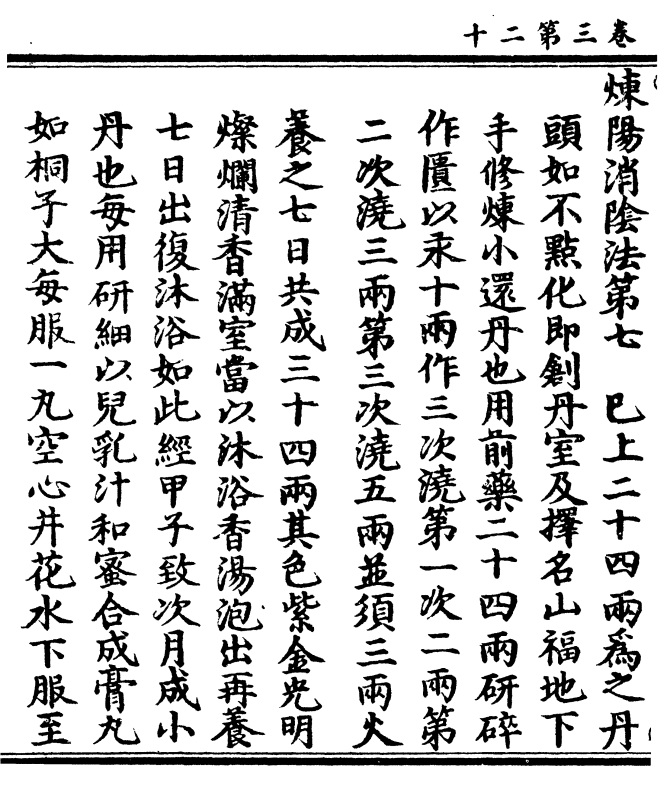 卷三第二十
煉陽消陰法第七　巳上二十四兩爲之丹
頭如不點化即創丹室及擇名山福地下
手修煉小還丹也用前藥二十四兩研碎
作匱以汞十兩作三次澆第一次二兩第
二次澆三兩第三次澆五兩並須三兩火
養之七日共成三十四兩其色紫金光明
燦爛清香滿室當以沐浴香湯泡出再養
七日出復沐浴如此經甲子致次月成小
丹也每用研細以兒乳汁和蜜合成膏丸
如桐子大每服一丸空心井花水下服至